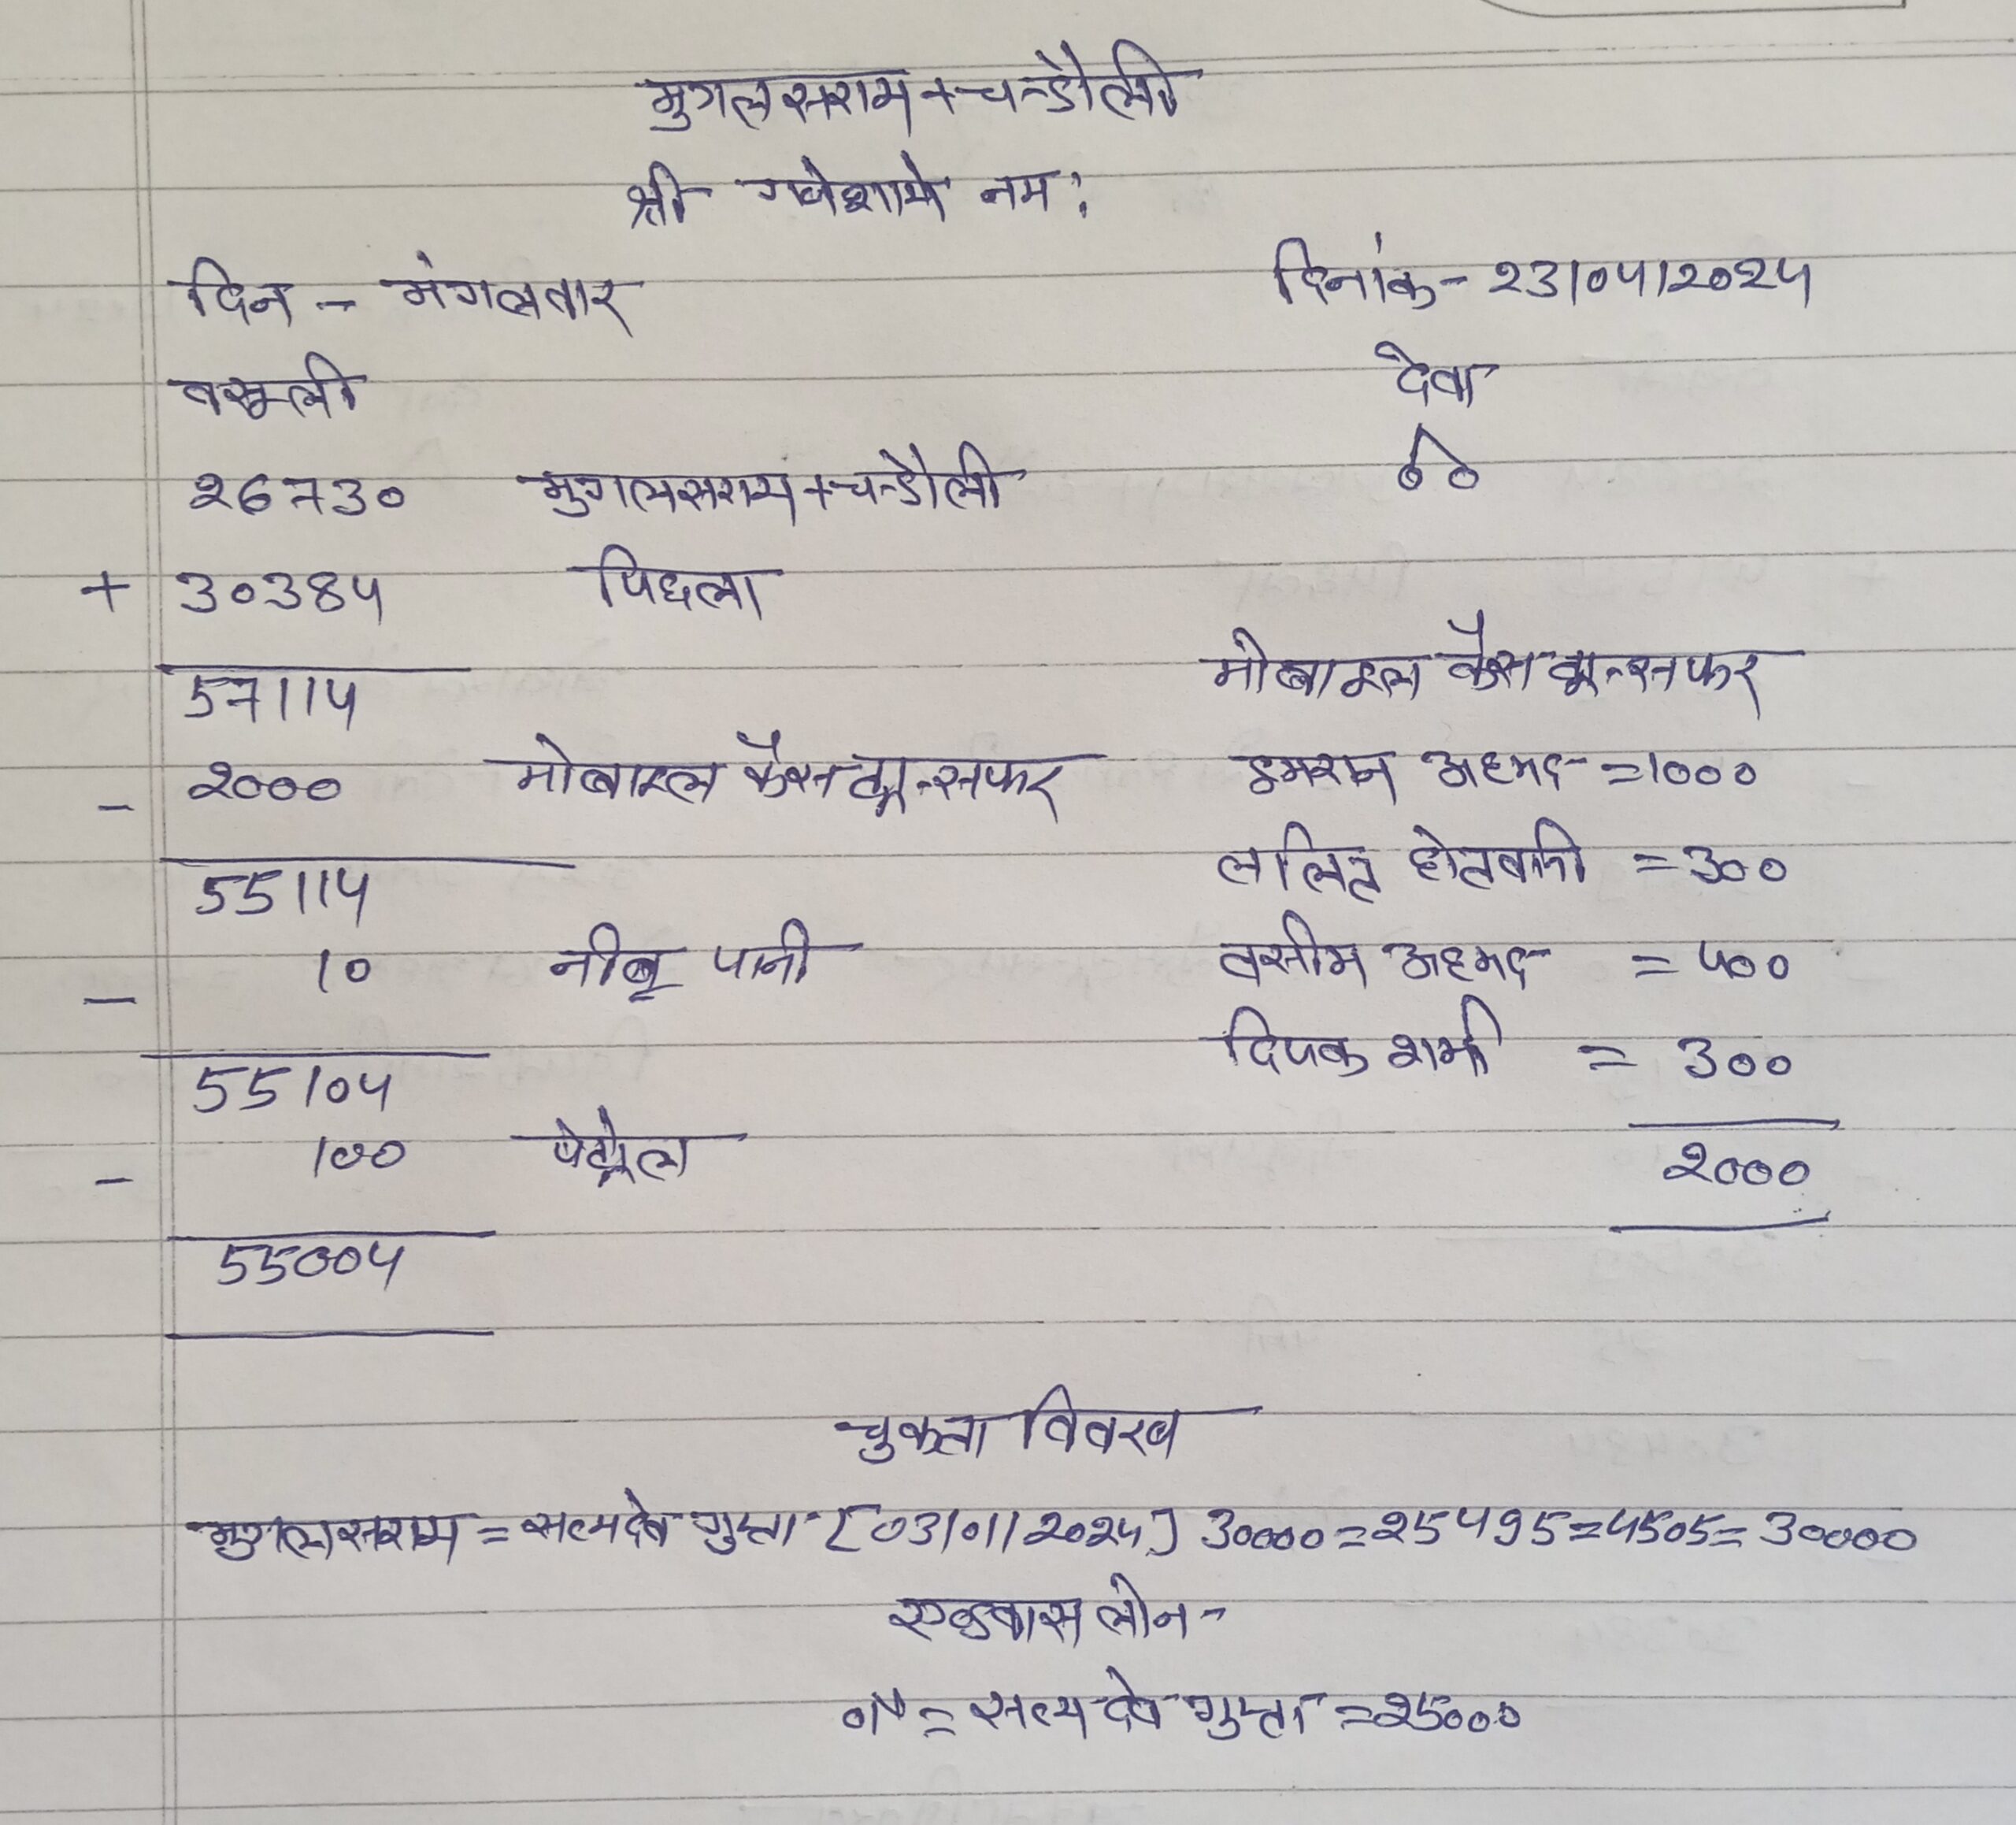 मुगलसराय + चन्डौली
श्री गणेशाये नम:
दिन - मंगलवार दिनांक - 23/04/2024
वसूली देवा
26730 मुगलसराय + चन्डौली 60
+ 30384 पिछला
57114 मोबाइल कैस ट्रान्सफर
- 2000 मोबाइल कैस ट्रान्सफर इमरान अहमद = 1000
55114 ललित = 300
- 10 नीबू पानी वसीम अहमद = 400
55104 दिपक शर्मा = 300
- 100 पेट्रोल 2000
55004
चुकता विवरण
मुगलसराय = सत्यदेव गुप्ता [03/01/2024] 30000 = 25495 = 4505 = 30000
एडवास लोन -
01 = सत्यदेव गुप्ता = 25000